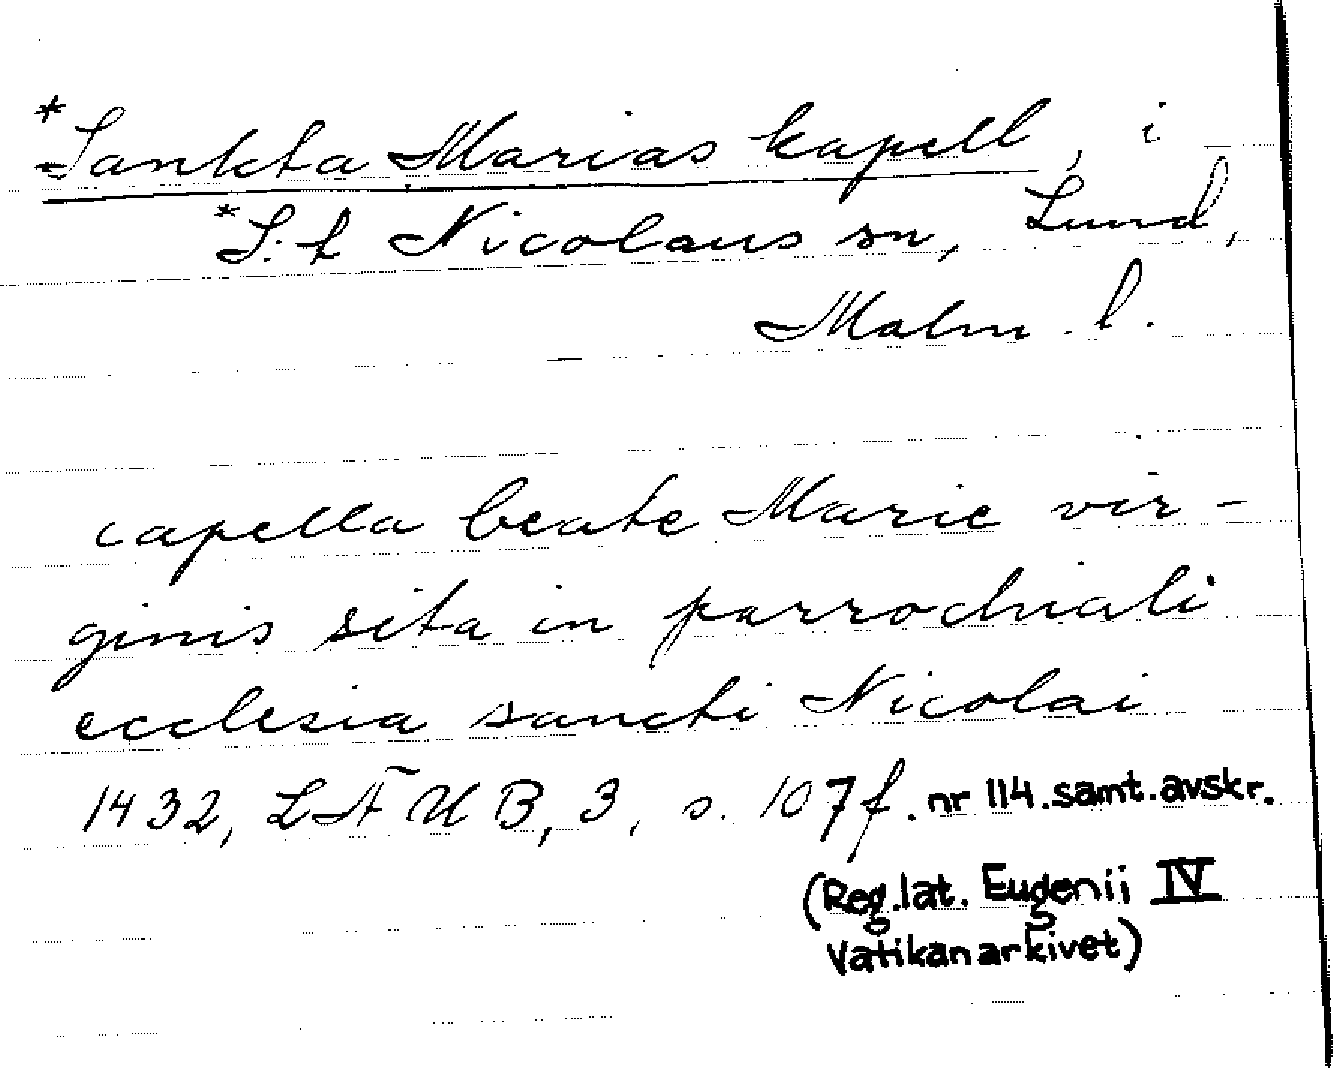 *Sankta Marias kapell, i
*S:t Nicolaus sn, Lund,
Malm. l.
capella beate Marie vir-
ginis sita in parrochiali
ecclesia sancti Nicolai
1432, LÄUB, 3, s. 107 f. nr 114. samt. avskr.
(Reg. lat. Eugenii IV
Vatikanarkivet)